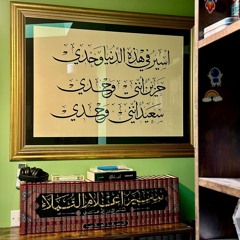 أسير في هذه الدنيا وحدي
حزين أنني وحدي
سعيد أنني وحدي
سير أعلام النبلاء